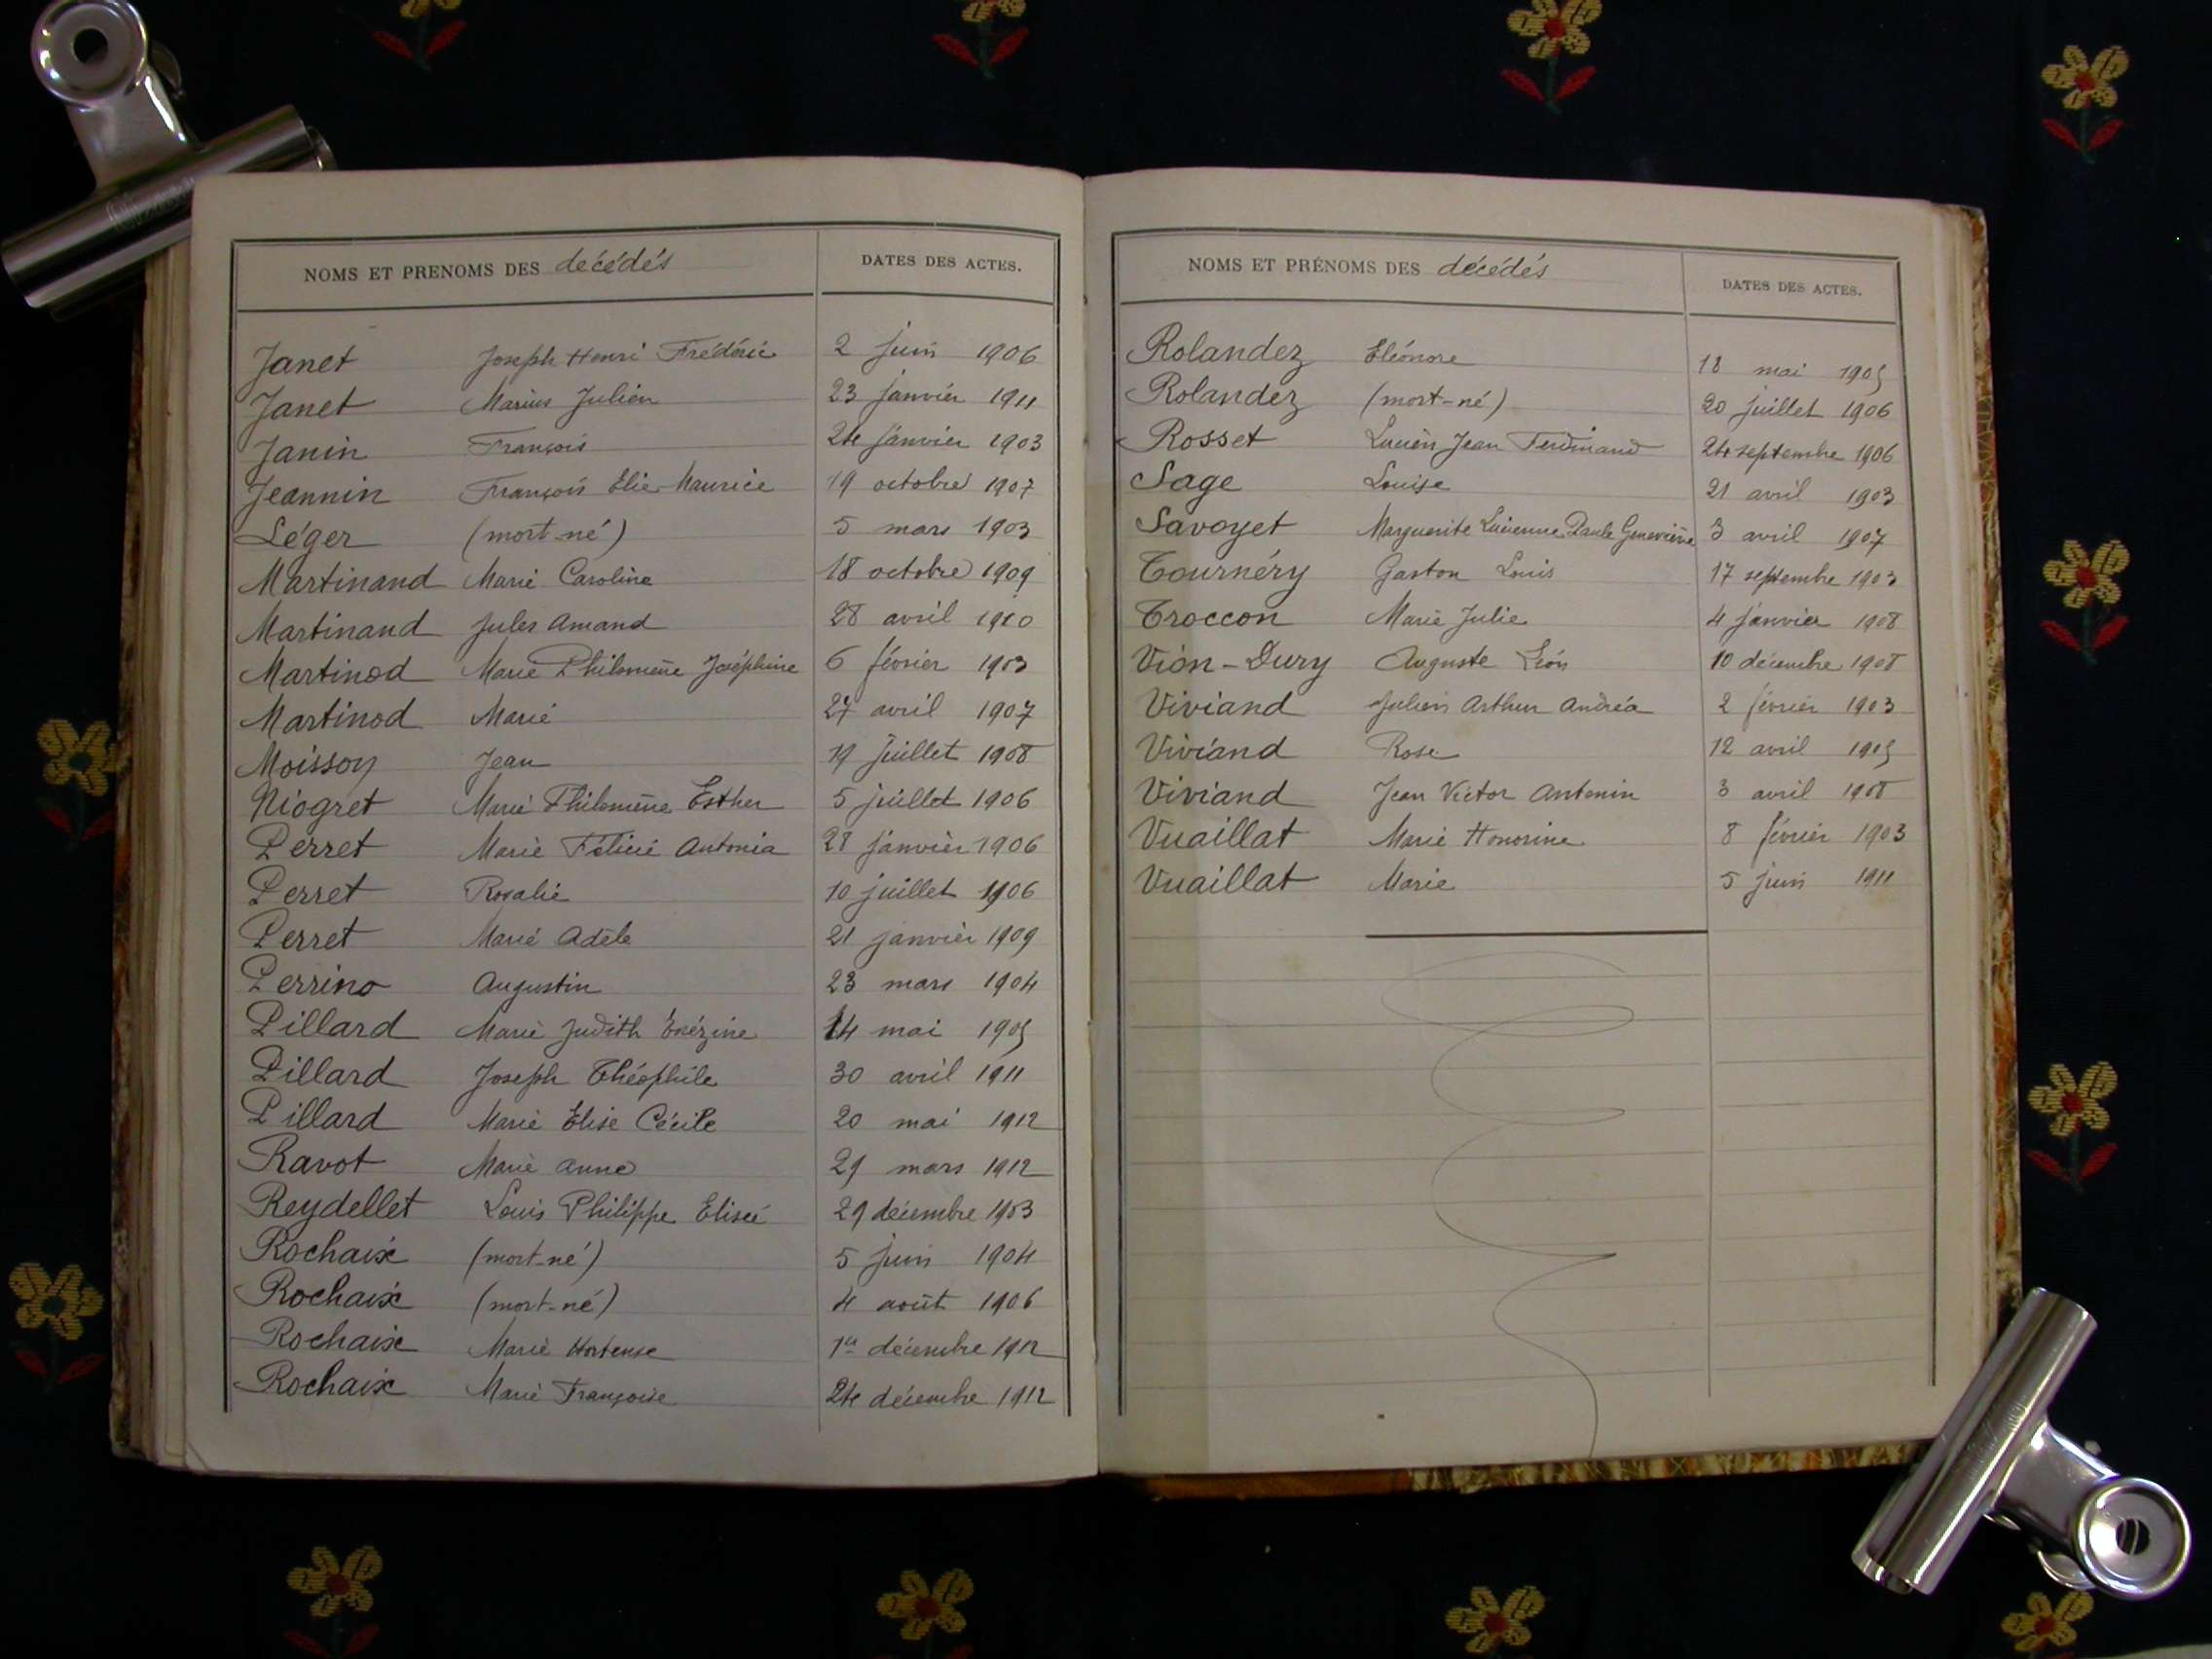 NOMS ET PRENOMS DES décédés DATES DES ACTES.
Janet Joseph Henri Frédéric 2 juin 1906
Janet Marius Julien 23 janvier 1911
Janin François 24 janvier 1903
Jeannin François Elie Maurice 19 octobre 1907
Léger (mort-né) 5 mars 1903
Martinand Marie Caroline 18 octobre 1909
Martinand Jules Amand 28 avril 1910
Martinod Marie Philomène Joséphine 6 février 1903
Martinod Marie 27 avril 1907
Moisson Jean 19 juillet 1908
Niogret Marie Philomène Esther 5 juillet 1906
Perret Marie Félicie Antonia 28 janvier 1906
Perret Rosalie 10 juillet 1906
Perret Marie Adèle 21 janvier 1909
Perrino Augustin 23 mars 1904
Pillard Marie Judith 14 mai 1905
Pillard Joseph Théophile 30 avril 1911
Pillard Marie Elise Cécile 20 mai 1912
Ravot Marie Anne 29 mars 1912
Reydellet Louis Philippe Elisée 29 décembre 1903
Rochaix (mort-né) 5 juin 1904
Rochaix (mort-né) 4 août 1906
Rochaix Marie Hortense 1er décembre 1912
Rochaix Marie Françoise 24 décembre 1912
NOMS ET PRÉNOMS DES décédés DATES DES ACTES.
Rolandez Eléonore 18 mai 1905
Rolandez (mort-né) 20 juillet 1906
Rosset Lucien Jean Ferdinand 24 septembre 1906
Sage Louise 21 avril 1903
Savoyet Marguerite Lucienne Paule Geneviève 3 avril 1907
Tournéry Gaston Louis 17 septembre 1903
Troccon Marie Julie 4 janvier 1908
Vion-Dury Auguste Léon 10 décembre 1908
Viviand Julien Arthur Andréa 2 février 1903
Viviand Rose 12 avril 1905
Viviand Jean Victor Antonin 3 avril 1908
Vuaillat Marie Honorine 8 février 1903
Vuaillat Marie 5 juin 1911